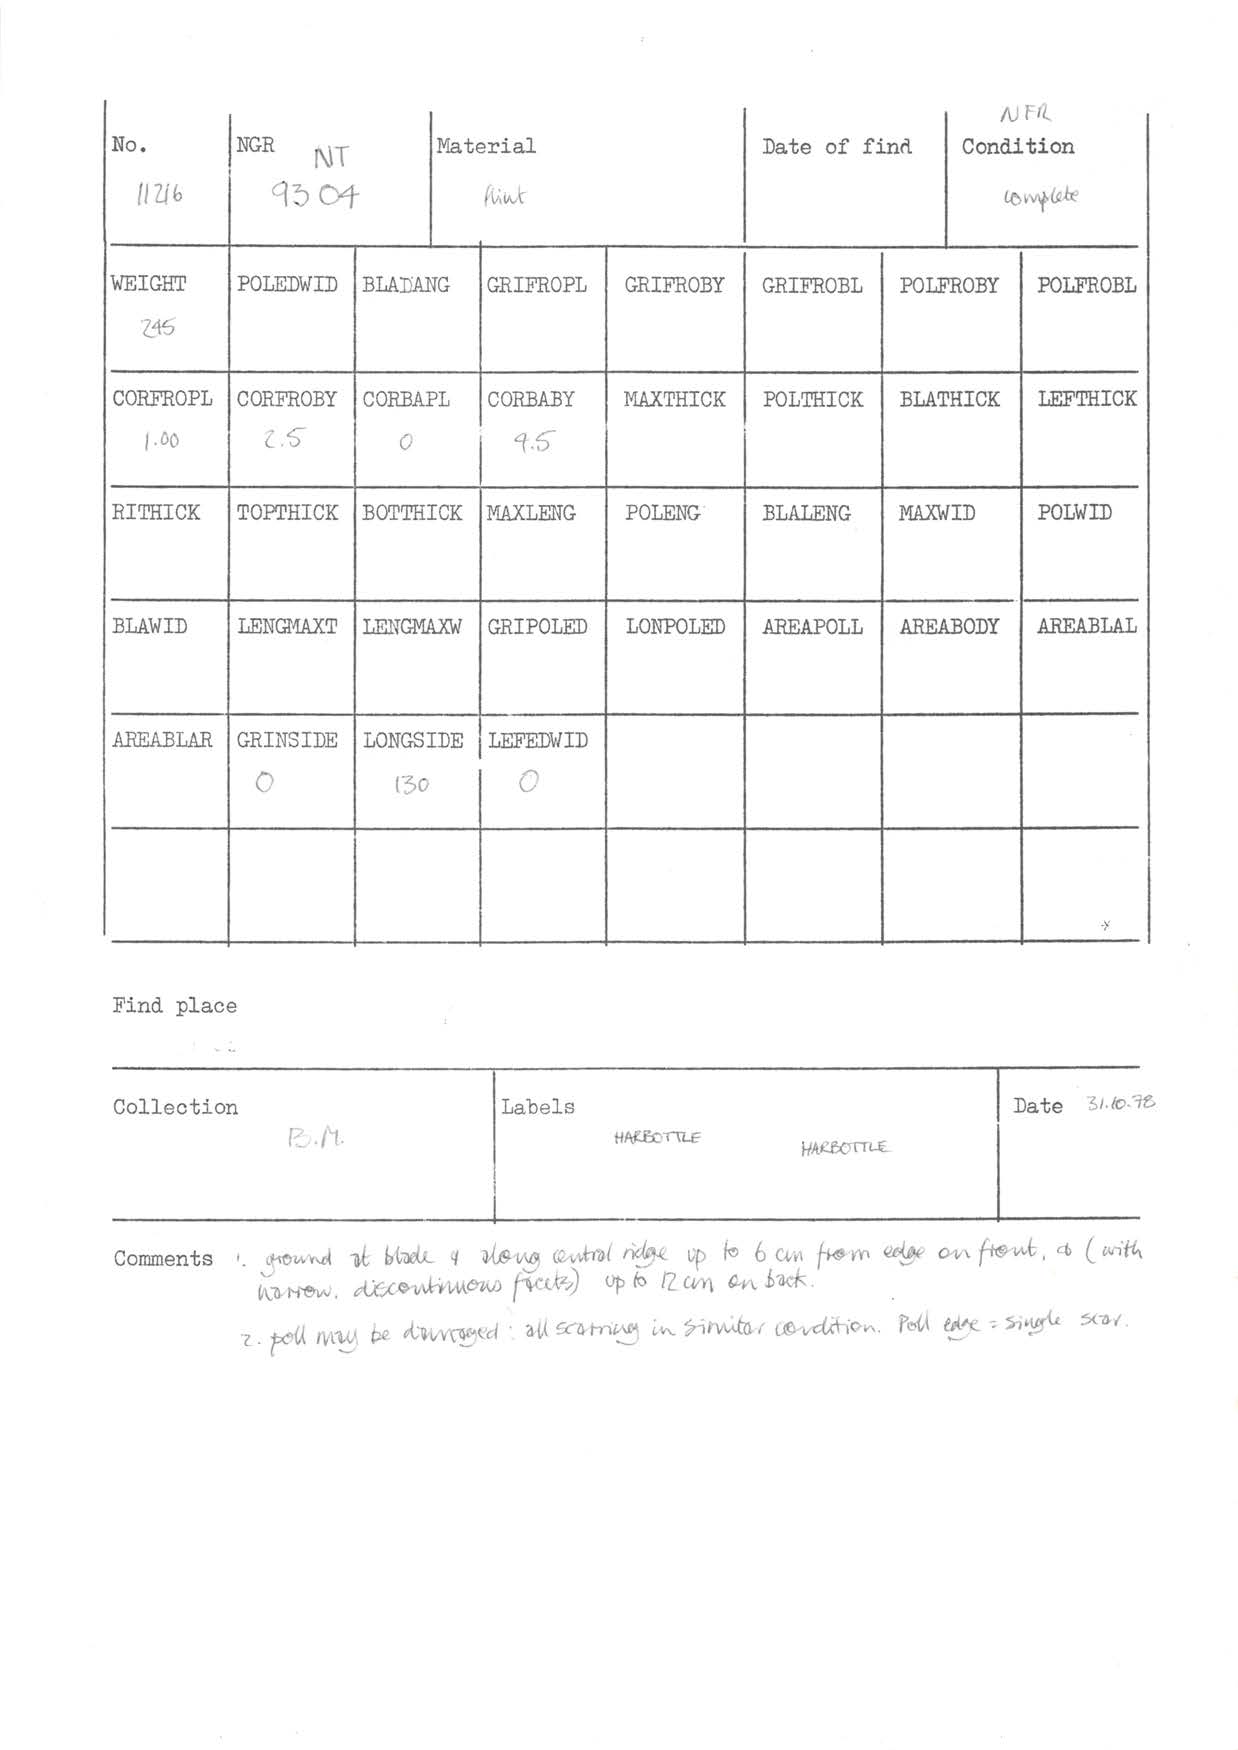 NFR
No. NGR NT Material Date of find Condition
11216 9304 flint complete
WEIGHT POLEDWID BLADANG GRIFROPL GRIFROBY GRIFROBL POLFROBY POLFROBL
245
CORFROPL CORFROBY CORBAPL CORBABY MAXTHICK POLTHICK BLATHICK LEFTHICK
1.00 2.5 0 9.5
RITHICK TOPTHICK BOTTHICK MAXLENG POLENG BLALENG MAXWID POLWID
BLAWID LENGMAXT LENGMAXW GRIPOLED LONPOLED AREAPOLL AREABODY AREABLAL
AREABLAR GRINSIDE LONGSIDE LEFEDWID
0 130 0
Find place
Collection Labels Date 31.10.78
B.M. HARBOTTLE HARBOTTLE
Comments 1. ground at blade & along central ridge up to 6 cm from edge on front, & (with
narrow, discontinuous facets) up to 12 cm on back.
2. poll may be damaged : all scarring in similar condition. Poll edge = single scar.